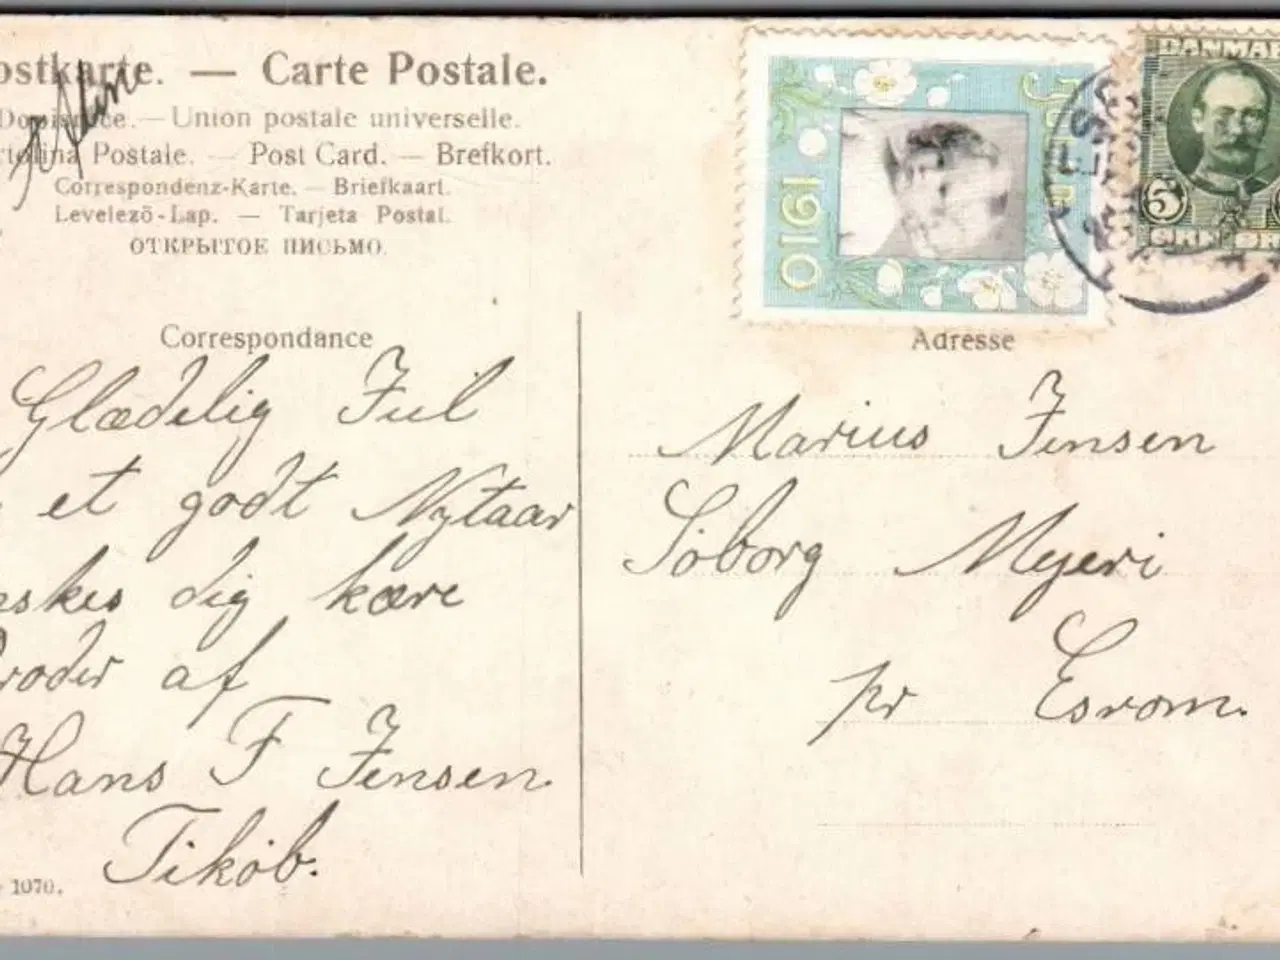 ostkarte. — Carte Postale.
Union postale universelle.
Postale. — Post Card. — Brefkort.
Correspondenz-Karte. — Briefkaart.
Levelező-Lap. — Tarjeta Postal.
ОТКРЫТОЕ ПИСЬМО.
Correspondance
Glædelig Jul
et godt Nytaar
nskes dig kære
roder af
Hans F Jensen.
Tikøb.
1070.
JUL
1910
DANMAR
5
Adresse
Marius Jensen
Søborg Mejeri
pr Esrom.